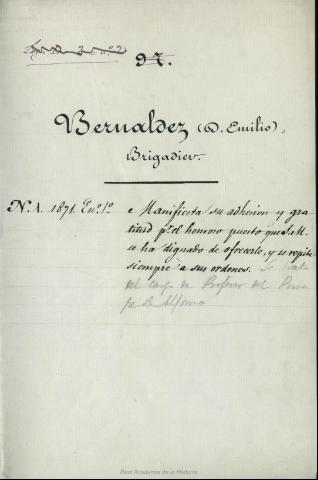 97.
Bernaldez (D. Emilio),
Brigadier.
N.1. 1871. En.º 1.º Manifiesta su adhesion y gra-
titud p.r el honroso puesto que S.M.
se ha dignado de ofrecerle, y se repite
siempre a sus ordenes. Se trata
del cargo de Profesor del Prínci-
pe D. Alfonso
Real Academia de la Historia